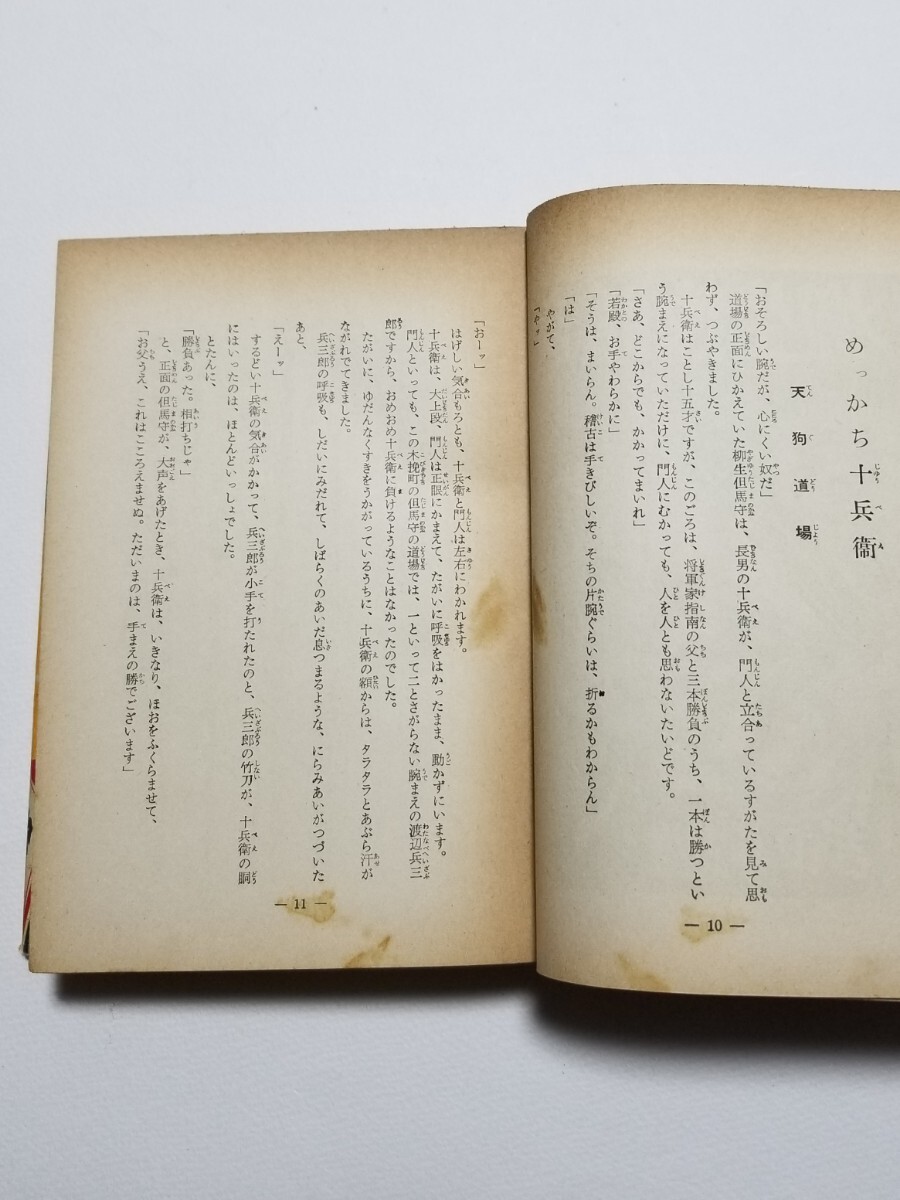 めっかち十兵衞
天狗道場
「おそろしい腕だが、心にくい奴だ」
道場の正面にひかえていた柳生但馬守は、長男の十兵衞が、門人と立合っているすがたを見て思
わず、つぶやきました。
十兵衞はことし十五才ですが、このごろは、将軍家指南の父と三本勝負のうち、一本は勝つとい
う腕まえになっていただけに、門人にむかっても、人を人とも思わないたいどです。
「さあ、どこからでも、かかってまいれ」
「若殿、お手やわらかに」
「そうは、まいらん。稽古は手きびしいぞ。そちの片腕ぐらいは、折るかもわからん」
「は」
やがて、
「ヤッ」
— 10 —
「おーッ」
はげしい気合もろとも、十兵衞と門人は左右にわかれます。
十兵衞は、大上段、門人は正眼にかまえて、たがいに呼吸をはかったまま、動かずにいます。
門人といっても、この木挽町の但馬守の道場では、一といって二とさがらない腕まえの渡辺兵三
郎ですから、おめおめ十兵衞に負けるようなことはなかったのでした。
たがいに、ゆだんなくすきをうかがっているうちに、十兵衞の額からは、タラタラとあぶら汗が
ながれでてきました。
兵三郎の呼吸も、しだいにみだれて、しばらくのあいだ息つまるような、にらみあいがつづいた
あと、
「えーッ」
するどい十兵衞の気合がかかって、兵三郎が小手を打たれたのと、兵三郎の竹刀が、十兵衞の胴
にはいったのは、ほとんどいっしょでした。
とたんに、
「勝負あった。相打ちじゃ」
と、正面の但馬守が、大声をあげたとき、十兵衞は、いきなり、ほおをふくらませて、
「お父うえ、これはこころえませぬ。ただいまのは、手まえの勝でございます」
— 11 —